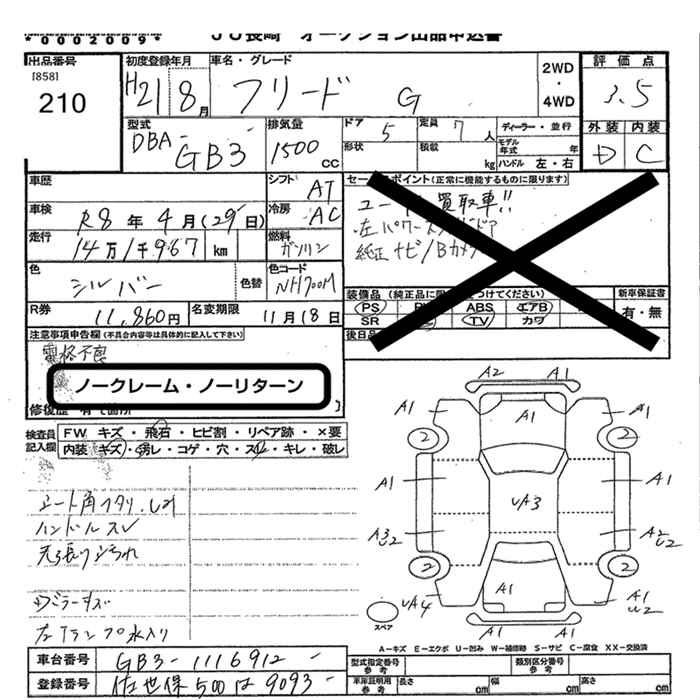 *0002009* JU長崎 オークション出品申込書
出品番号 [858] 210
初度登録年月 H21 8月
車名・グレード フリード G
2WD・4WD
評価点 3.5
外装 D 内装 C
型式 DBA-GB3
排気量 1500 CC
ドア 5 定員 7人
形状 積載 kg
ディーラー・並行
モデル年式 年
ハンドル 左・右
車歴
シフト AT
車検 R8年4月(29日)
冷房 AC
走行 14万1千967 km
燃料 ガソリン
色 シルバー 色替
色コード NH700M
R券 11,860円
名変期限 11月18日
セールスポイント(正常に機能するものに限ります)
買取車!!
左パワースライドドア
純正ナビ/Bカメラ
装備品
PS ABS エアB
SR TV カワ
新車保証書 有・無
後日品
注意事項申告欄(不具合内容等は具体的に記入して下さい)
電格不良
ノークレーム・ノーリターン
検査員記入欄
FW キズ・飛石・ヒビ割・リペア跡・×要
内装 キズ・汚レ・コゲ・穴・スレ・キレ・破レ
ハンドルスレ
A2 A1
A1 A1 A1
2 2
A1 A1
UA3
A3 U2 A2 U2
2 2
UA4 A1 A1 U2
A1 A1
スペア
A-キズ E-エクボ U-凹み W-補修跡 S-サビ C-腐食 XX-交換済
車台番号 GB3-1116912
登録番号 佐世保 500 は 9093
型式指定番号 参考
類別区分番号 参考
車庫証明用 参考 長さ cm 幅 cm 高さ cm